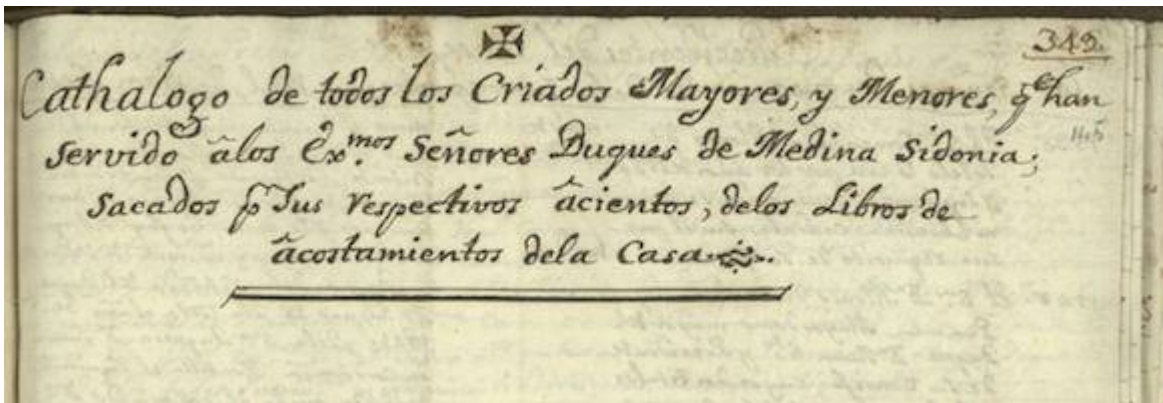 ✠
343.
Cathalogo de todos los Criados Mayores, y Menores, q̃ han
servido âlos Ex.mos Señores Duques de Medina Sidonia;
Sacados p.r sus respectivos âcientos, delos Libros de
âcostamientos dela Casa.